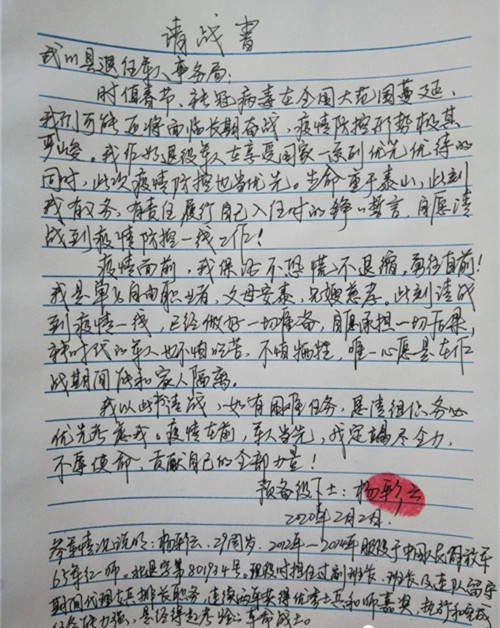 请战书
武川县退役军人事务局:
时值春节、新冠病毒在全国大范围蔓延、
我们可能还将面临长期奋战,疫情防控形势极其
严峻。我作为退役军人在享受国家一系列优先优待的
同时,此次疫情防控也当优先。生命重于泰山,此刻
我有义务、有责任履行自己入伍时的铮铮誓言,自愿请
战到疫情防控一线工作!
疫情面前,我保证不恐慌、不退缩,勇往直前!
我是单身自由职业者,父母安泰,兄嫂慈孝。此刻请战
到疫情一线,已经做好一切准备,自愿承担一切后果,
新时代的军人也不怕吃苦、不怕牺牲,唯一心愿是在作
战期间能和家人隔离。
我以此书请战,如有困难任务,恳请组织务必
优先考虑我。疫情在前,军人当先,我定竭尽全力,
不辱使命,贡献自己的全部力量!
预备役下士:杨彩云
2020年2月2日
参军情况说明:杨彩云、29周岁、2012年—2014年服役于中国人民解放军
65军红一师。北京字第801934号。现役时担任过副班长、班长及连队留守
期间代理女兵排长职务,连续两年获得优秀士兵和师嘉奖,执行和完成
任务能力强,是经得起考验的革命战士。